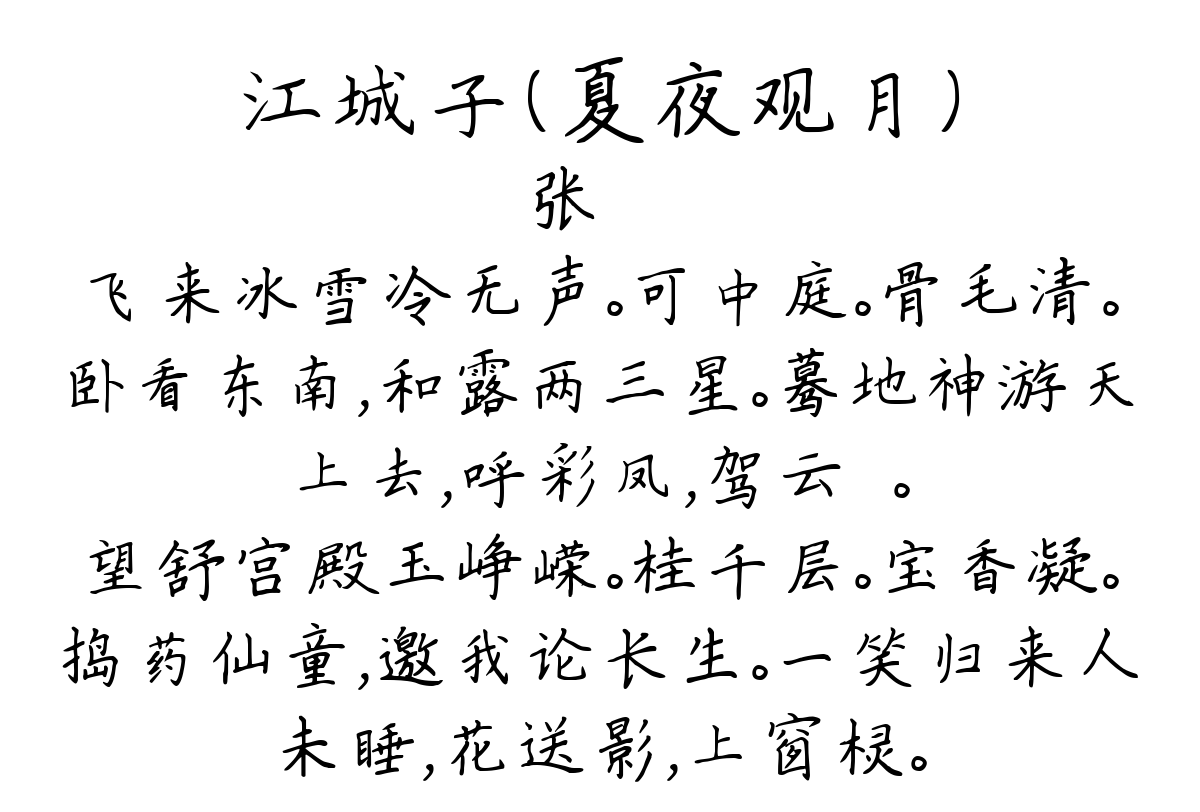 江城子(夏夜观月)
张
飞来冰雪冷无声。可中庭。骨毛清。
卧看东南,和露两三星。蓦地神游天
上去,呼彩凤,驾云 。
望舒宫殿玉峥嵘。桂千层。宝香凝。
捣药仙童,邀我论长生。一笑归来人
未睡,花送影,上窗棂。